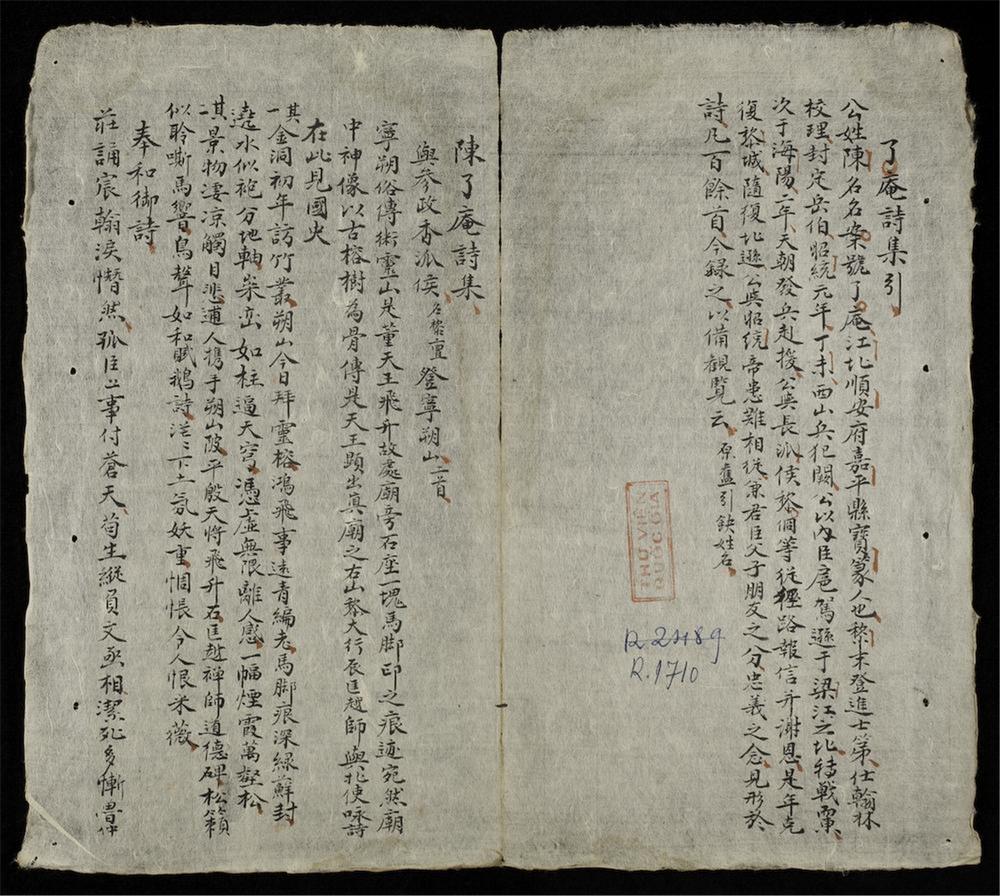 了庵詩集引
公姓陳名名案號了庵江北順安府嘉平縣寶篆人也黎末登進士第仕翰林
校理封定岳伯昭統元年丁未西山兵犯闕公以內臣扈駕遜于梁江之北特戰
次于海陽二年天朝發兵赴援公與長派侯黎侗等從徑路報信并謝恩是年克
復黎城隨復北遜公與昭統帝患難相從兼君臣父子朋友之分忠義之念見形於
詩凡百餘首今録之以備觀覽云 原舊引缺姓名
THƯ VIỆN
QUỐC GIA
R.2489
R.1710
陳了庵詩集
與參政香派侯名黎亶登寧朔山二首
寧朔俗傳術靈山是董天王飛升故處廟旁石座一塊馬脚印之痕迹宛然廟
中神像以古榕樹為骨傳是天王顯出真廟之右山黎大行辰匡越師與北使咏詩
在此見國史
其一金洞初年訪竹叢朔山今日拜靈榕鴻飛事遠青編老馬脚痕深綠蘚封
遶水似袍分地軸崇巒如柱逼天穹憑虛無限離人感一幅煙霞萬壑松
其二景物淒凉觸目悲逋人携手朔山陂平殷天將飛升石匡越禪師道德碑松籟
似聆嘶馬響鳥聲如和賦鵝詩茫茫下土氛妖重惆悵令人恨采薇
奉和御詩
莊誦宸翰淚憯然孤臣心事付蒼天苟生縱負文丞相潔死多慚